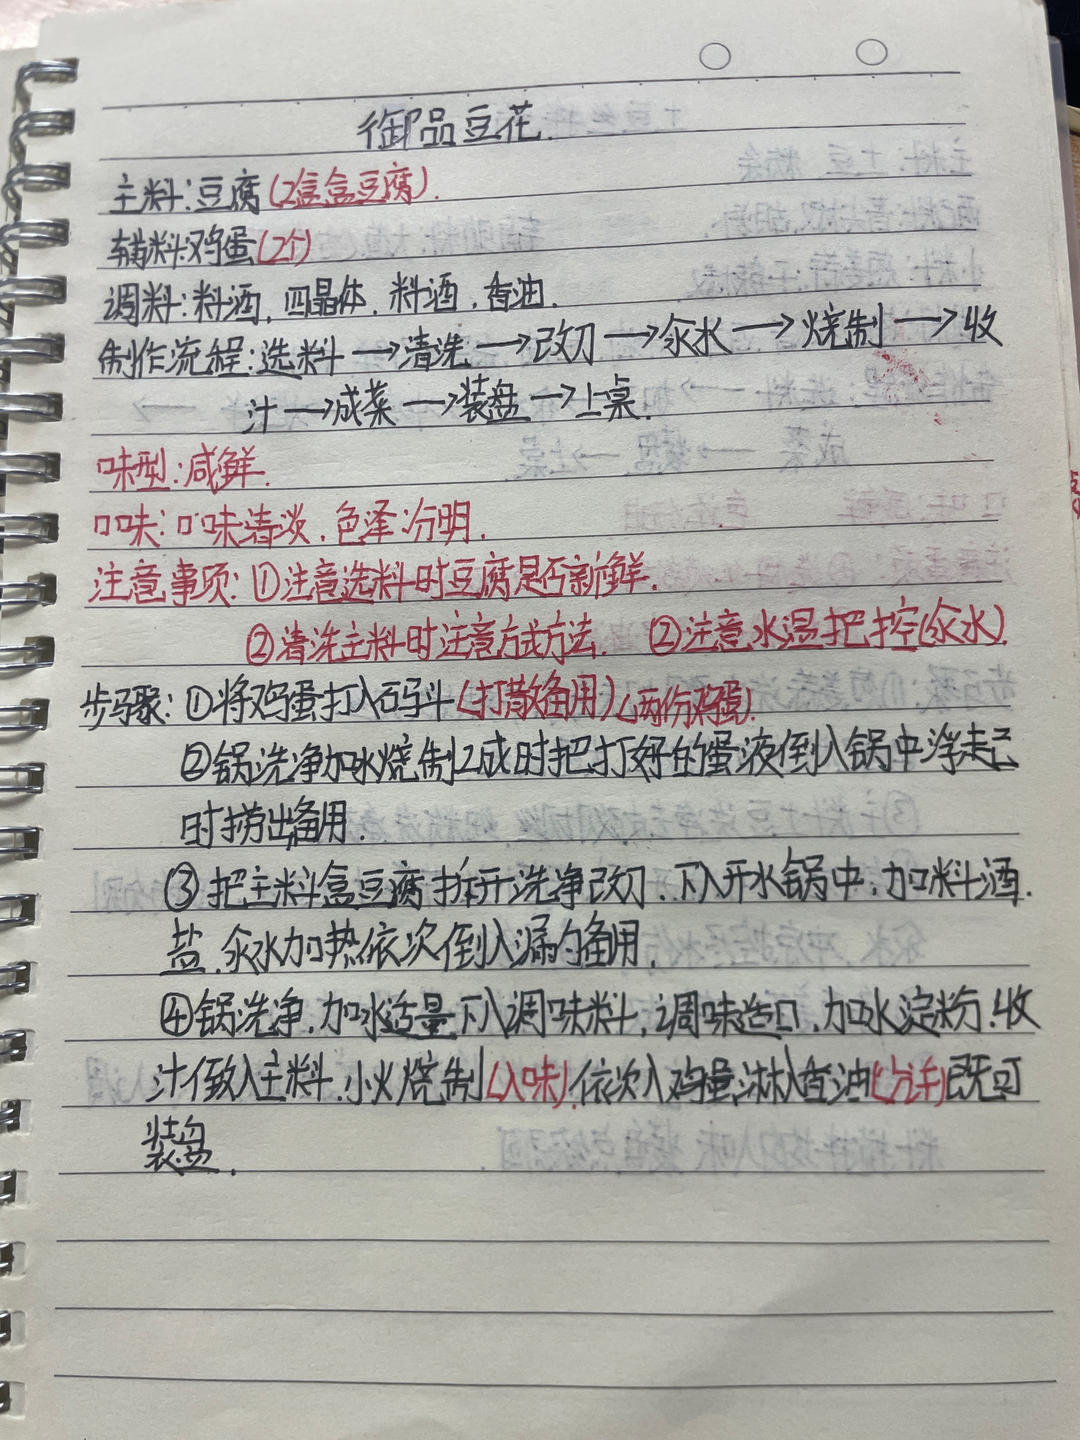 御品豆花.
主料:豆腐(2盒盒豆腐).
辅料:鸡蛋(2个)
调料:料酒,四晶体,料酒,香油.
制作流程:选料→清洗→改刀→汆水→烧制→收
汁→成菜→装盘→上桌.
味型:咸鲜.
口味:口味清淡,色泽分明.
注意事项:①注意选料时豆腐是否新鲜.
②清洗主料时注意方式方法. ②注意水温把控(汆水).
步骤:①将鸡蛋打入码斗(打散备用)(两份鸡蛋).
②锅洗净加水烧制2成时把打好的蛋液倒入锅中浮起
时捞出备用.
③把主料盒豆腐拆开洗净改刀.下入开水锅中,加料酒.
盐.汆水加热依次倒入漏勺备用.
④锅洗净.加水适量下入调味料,调味造口,加水淀粉.收
汁倒入主料.小火烧制(入味).依次入鸡蛋淋入香油既可
装盘.